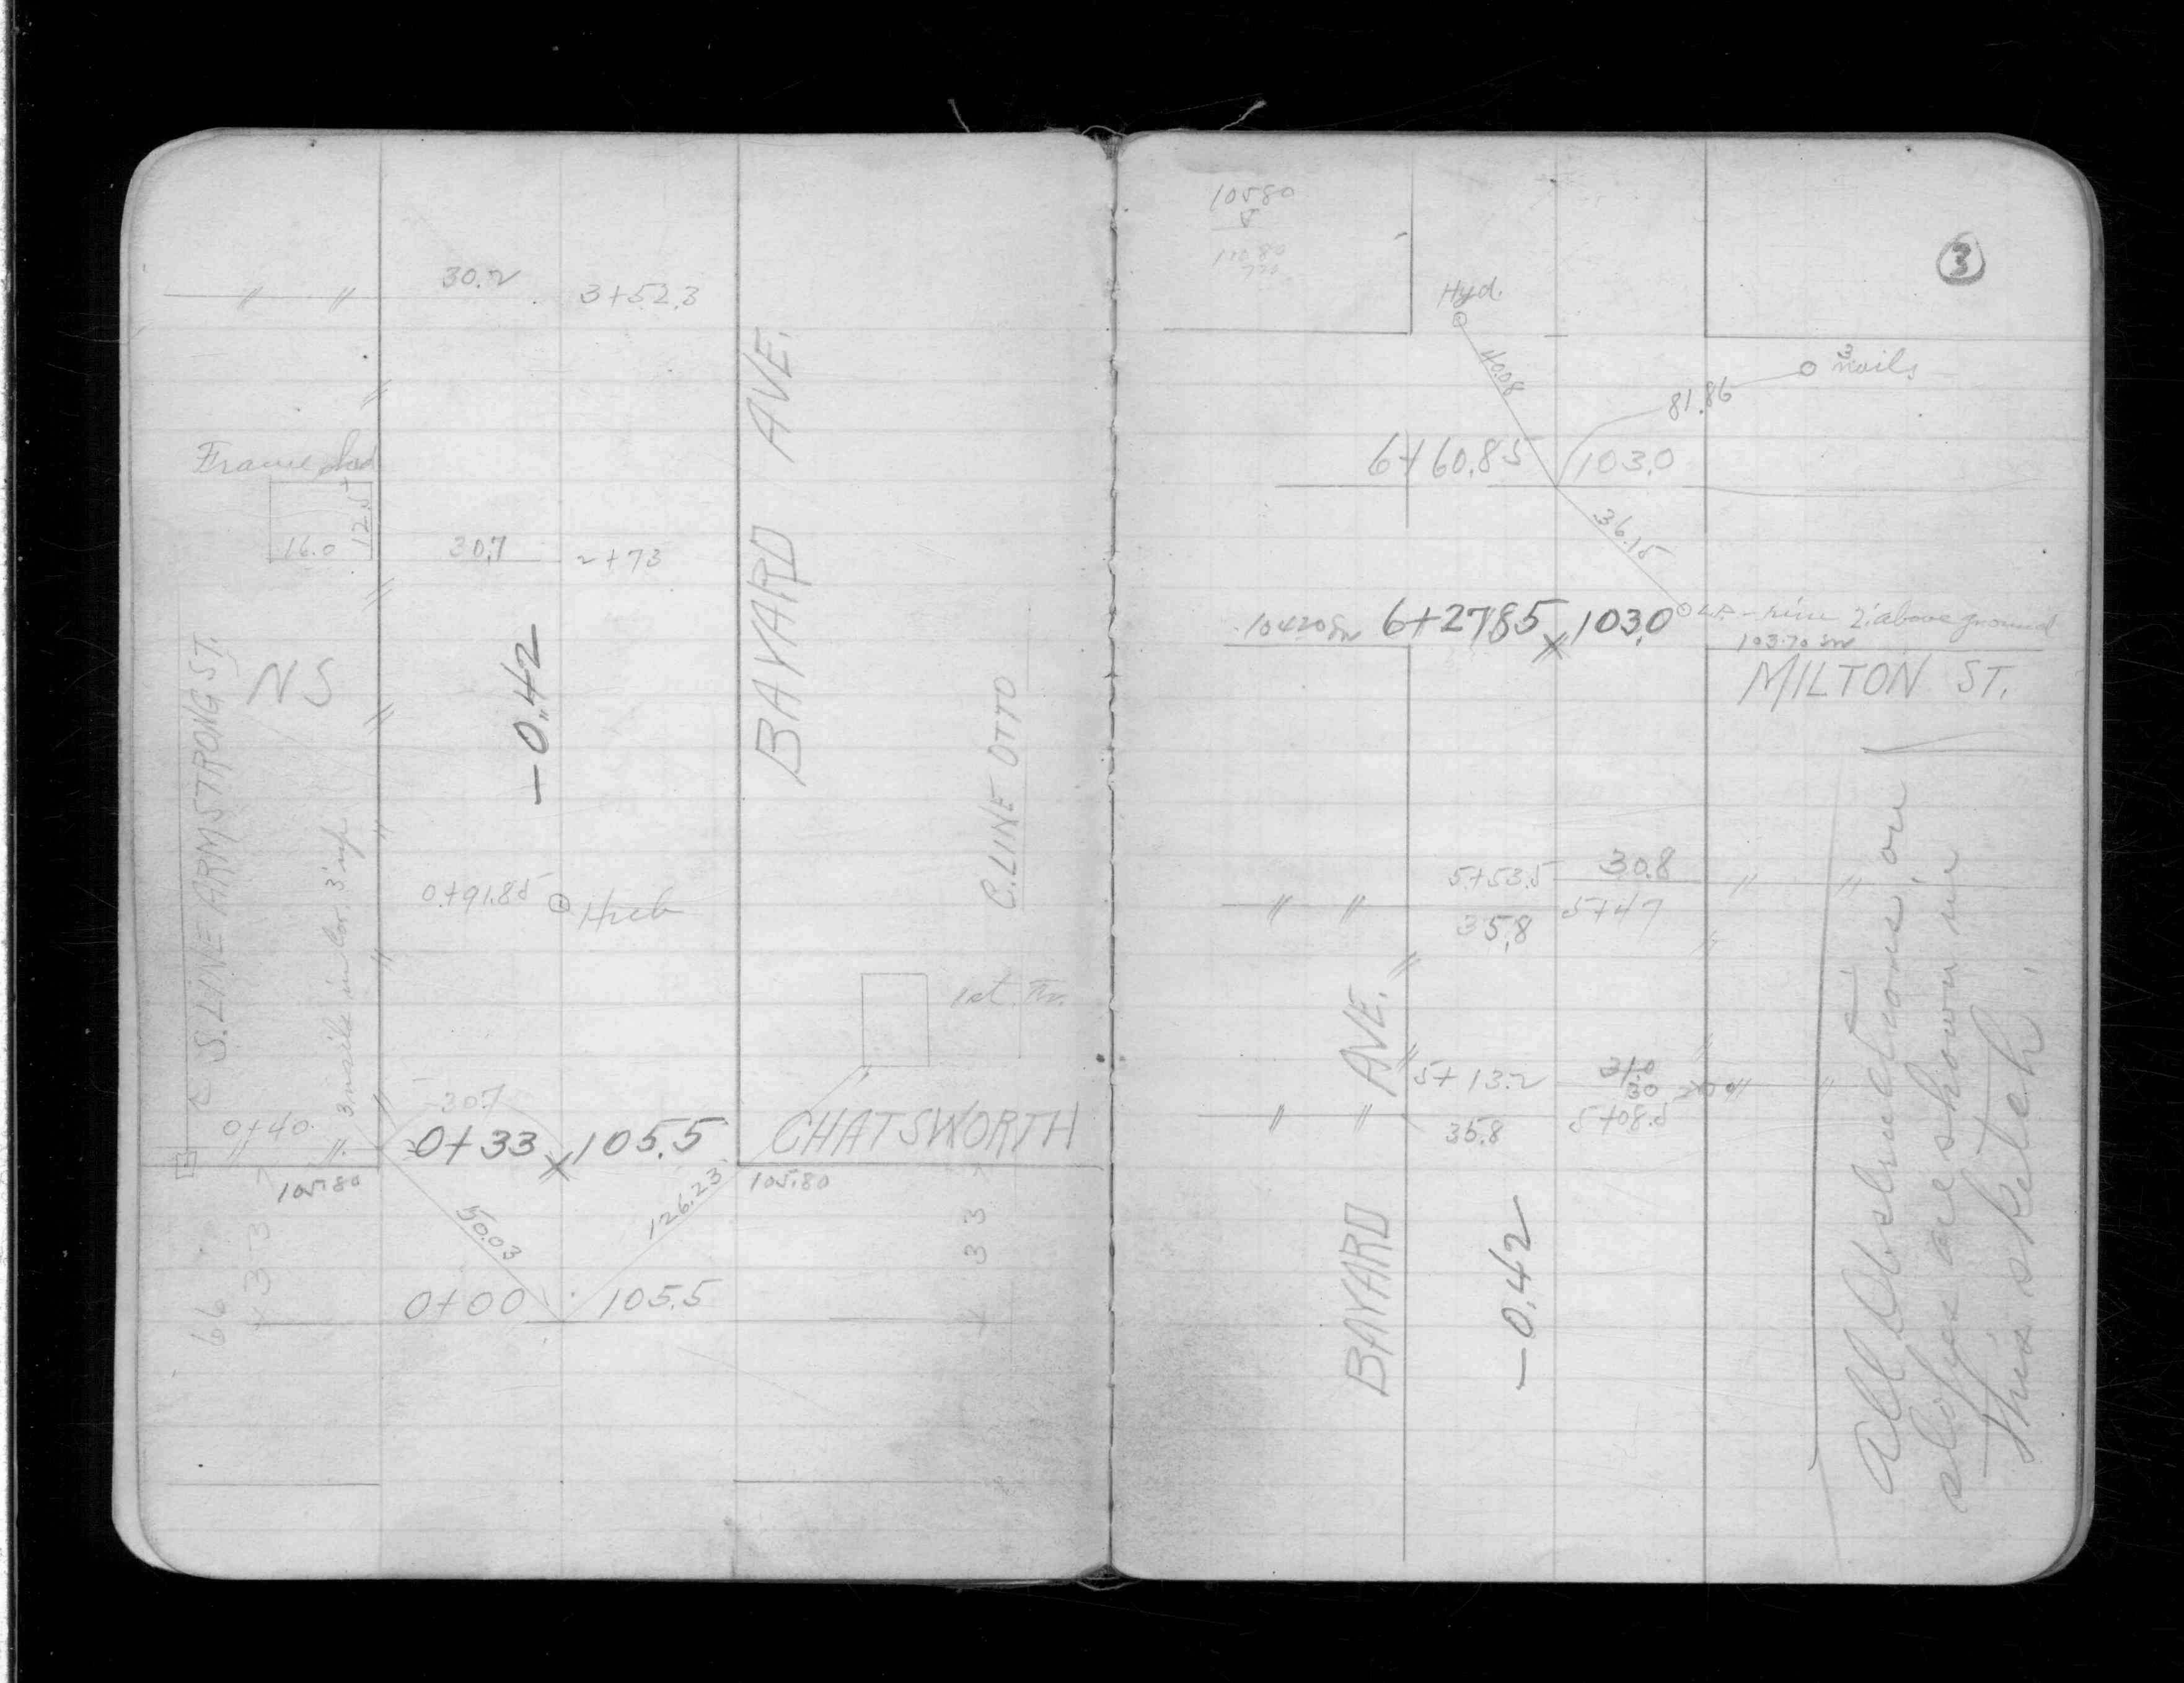 " "
30.2
3+52.3
BAYARD AVE.
"
Frame shed
16.0
12.5
30.7
2+73
"
N S
-0.42
S. LINE ARMSTRONG ST.
"
"
C. LINE OTTO
3 nails in Cor. 3' up
0+91.85
Hub
"
1st Fr.
30.7
"
0+40
" "
0+33
105.5
CHATSWORTH
105.80
105.80
33
50.03
126.23
33
66
0+00
105.5
10580
3
Hyd.
40.08
3 nails
81.86
6+60.85
103.0
36.15
104.20
6+27.85
103.0
- rim 2' above ground
103.70
MILTON ST.
5+53.5
30.8
" "
" "
35.8
5+47
"
BAYARD AVE.
"
5+13.2
31.0
30
"
" "
35.8
5+08.5
-0.42
All Obstructions, on
slopes are shown in
this sketch.